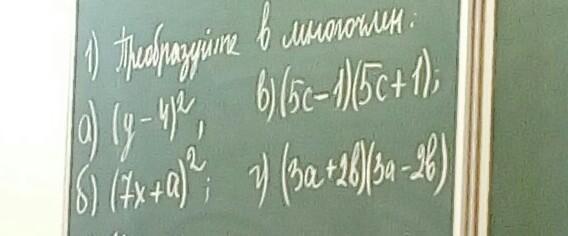 1) Преобразуйте в многочлен:
а) (y - 4)², в) (5c - 1)(5c + 1);
б) (7x + a)²; г) (3a + 2b)(3a - 2b)